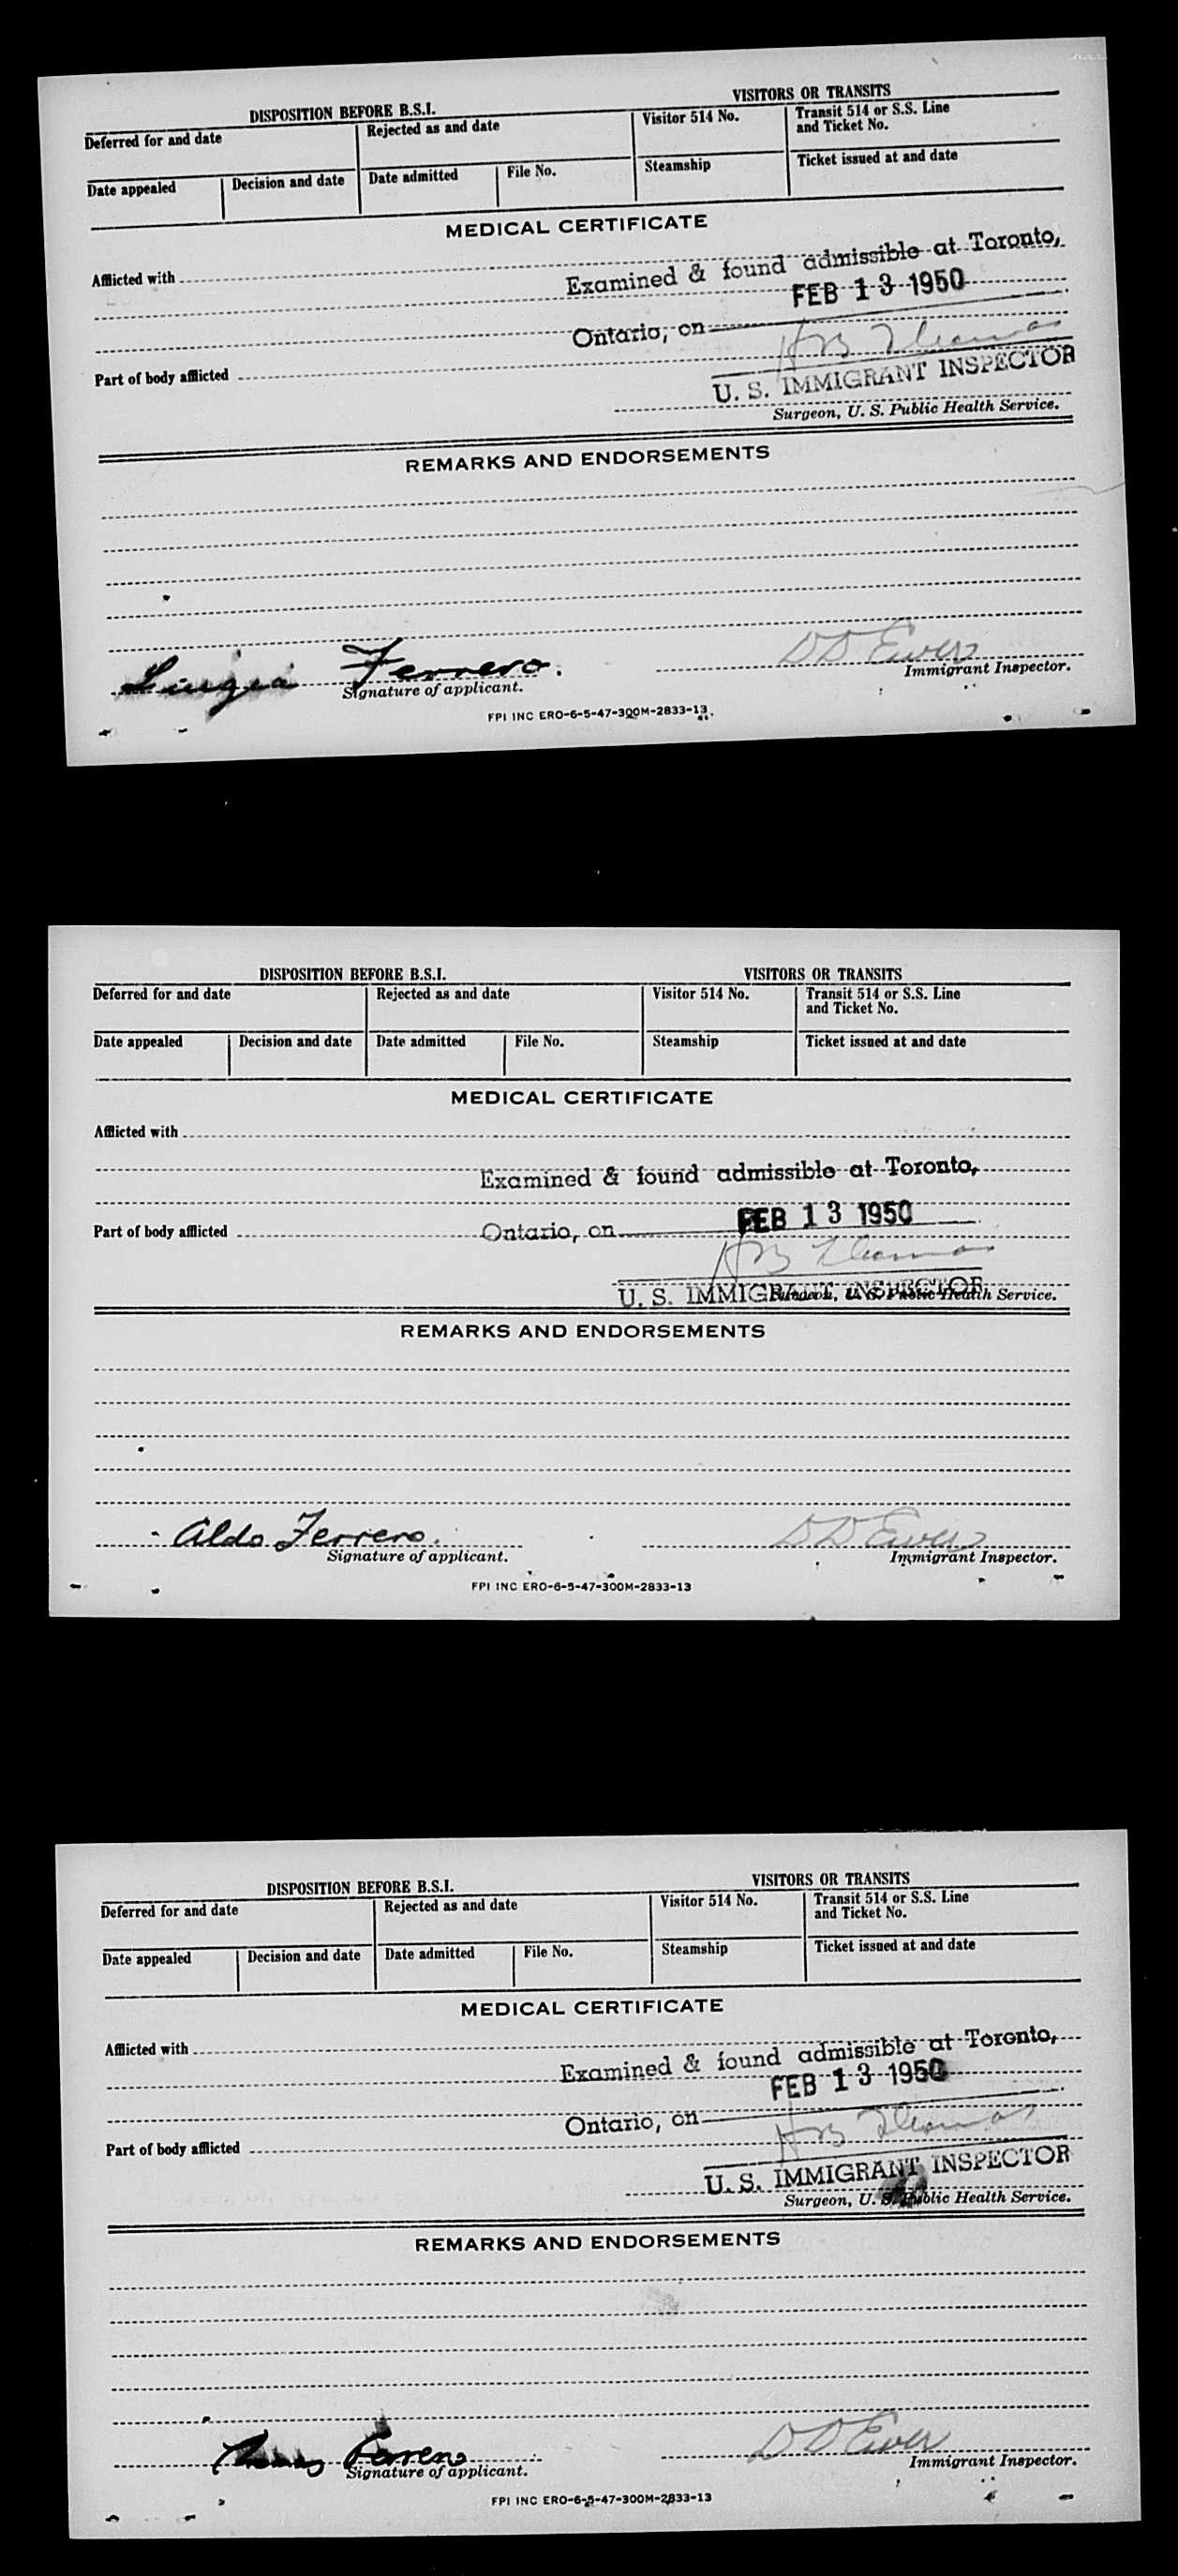 DISPOSITION BEFORE B.S.I. VISITORS OR TRANSITS
Deferred for and date Rejected as and date Visitor 514 No. Transit 514 or S.S. Line
and Ticket No.
Date appealed Decision and date Date admitted File No. Steamship Ticket issued at and date
MEDICAL CERTIFICATE
Afflicted with
Examined & found admissible at Toronto,
FEB 13 1950
Ontario, on
H B Thomas
Part of body afflicted
U. S. IMMIGRANT INSPECTOR
Surgeon, U. S. Public Health Service.
REMARKS AND ENDORSEMENTS
Luigia Ferrero. D D Ewer
Signature of applicant. Immigrant Inspector.
FPI INC ERO-6-5-47-300M-2833-13
DISPOSITION BEFORE B.S.I. VISITORS OR TRANSITS
Deferred for and date Rejected as and date Visitor 514 No. Transit 514 or S.S. Line
and Ticket No.
Date appealed Decision and date Date admitted File No. Steamship Ticket issued at and date
MEDICAL CERTIFICATE
Afflicted with
Examined & found admissible at Toronto,
FEB 13 1950
Part of body afflicted Ontario, on
H B Thomas
U. S. IMMIGRANT INSPECTOR
Surgeon, U. S. Public Health Service.
REMARKS AND ENDORSEMENTS
Aldo Ferrero. D D Ewer
Signature of applicant. Immigrant Inspector.
FPI INC ERO-6-5-47-300M-2833-13
DISPOSITION BEFORE B.S.I. VISITORS OR TRANSITS
Deferred for and date Rejected as and date Visitor 514 No. Transit 514 or S.S. Line
and Ticket No.
Date appealed Decision and date Date admitted File No. Steamship Ticket issued at and date
MEDICAL CERTIFICATE
Afflicted with
Examined & found admissible at Toronto,
FEB 13 1950
Ontario, on
H B Thomas
Part of body afflicted
U. S. IMMIGRANT INSPECTOR
Surgeon, U. S. Public Health Service.
REMARKS AND ENDORSEMENTS
Ferrero D D Ewer
Signature of applicant. Immigrant Inspector.
FPI INC ERO-6-5-47-300M-2833-13